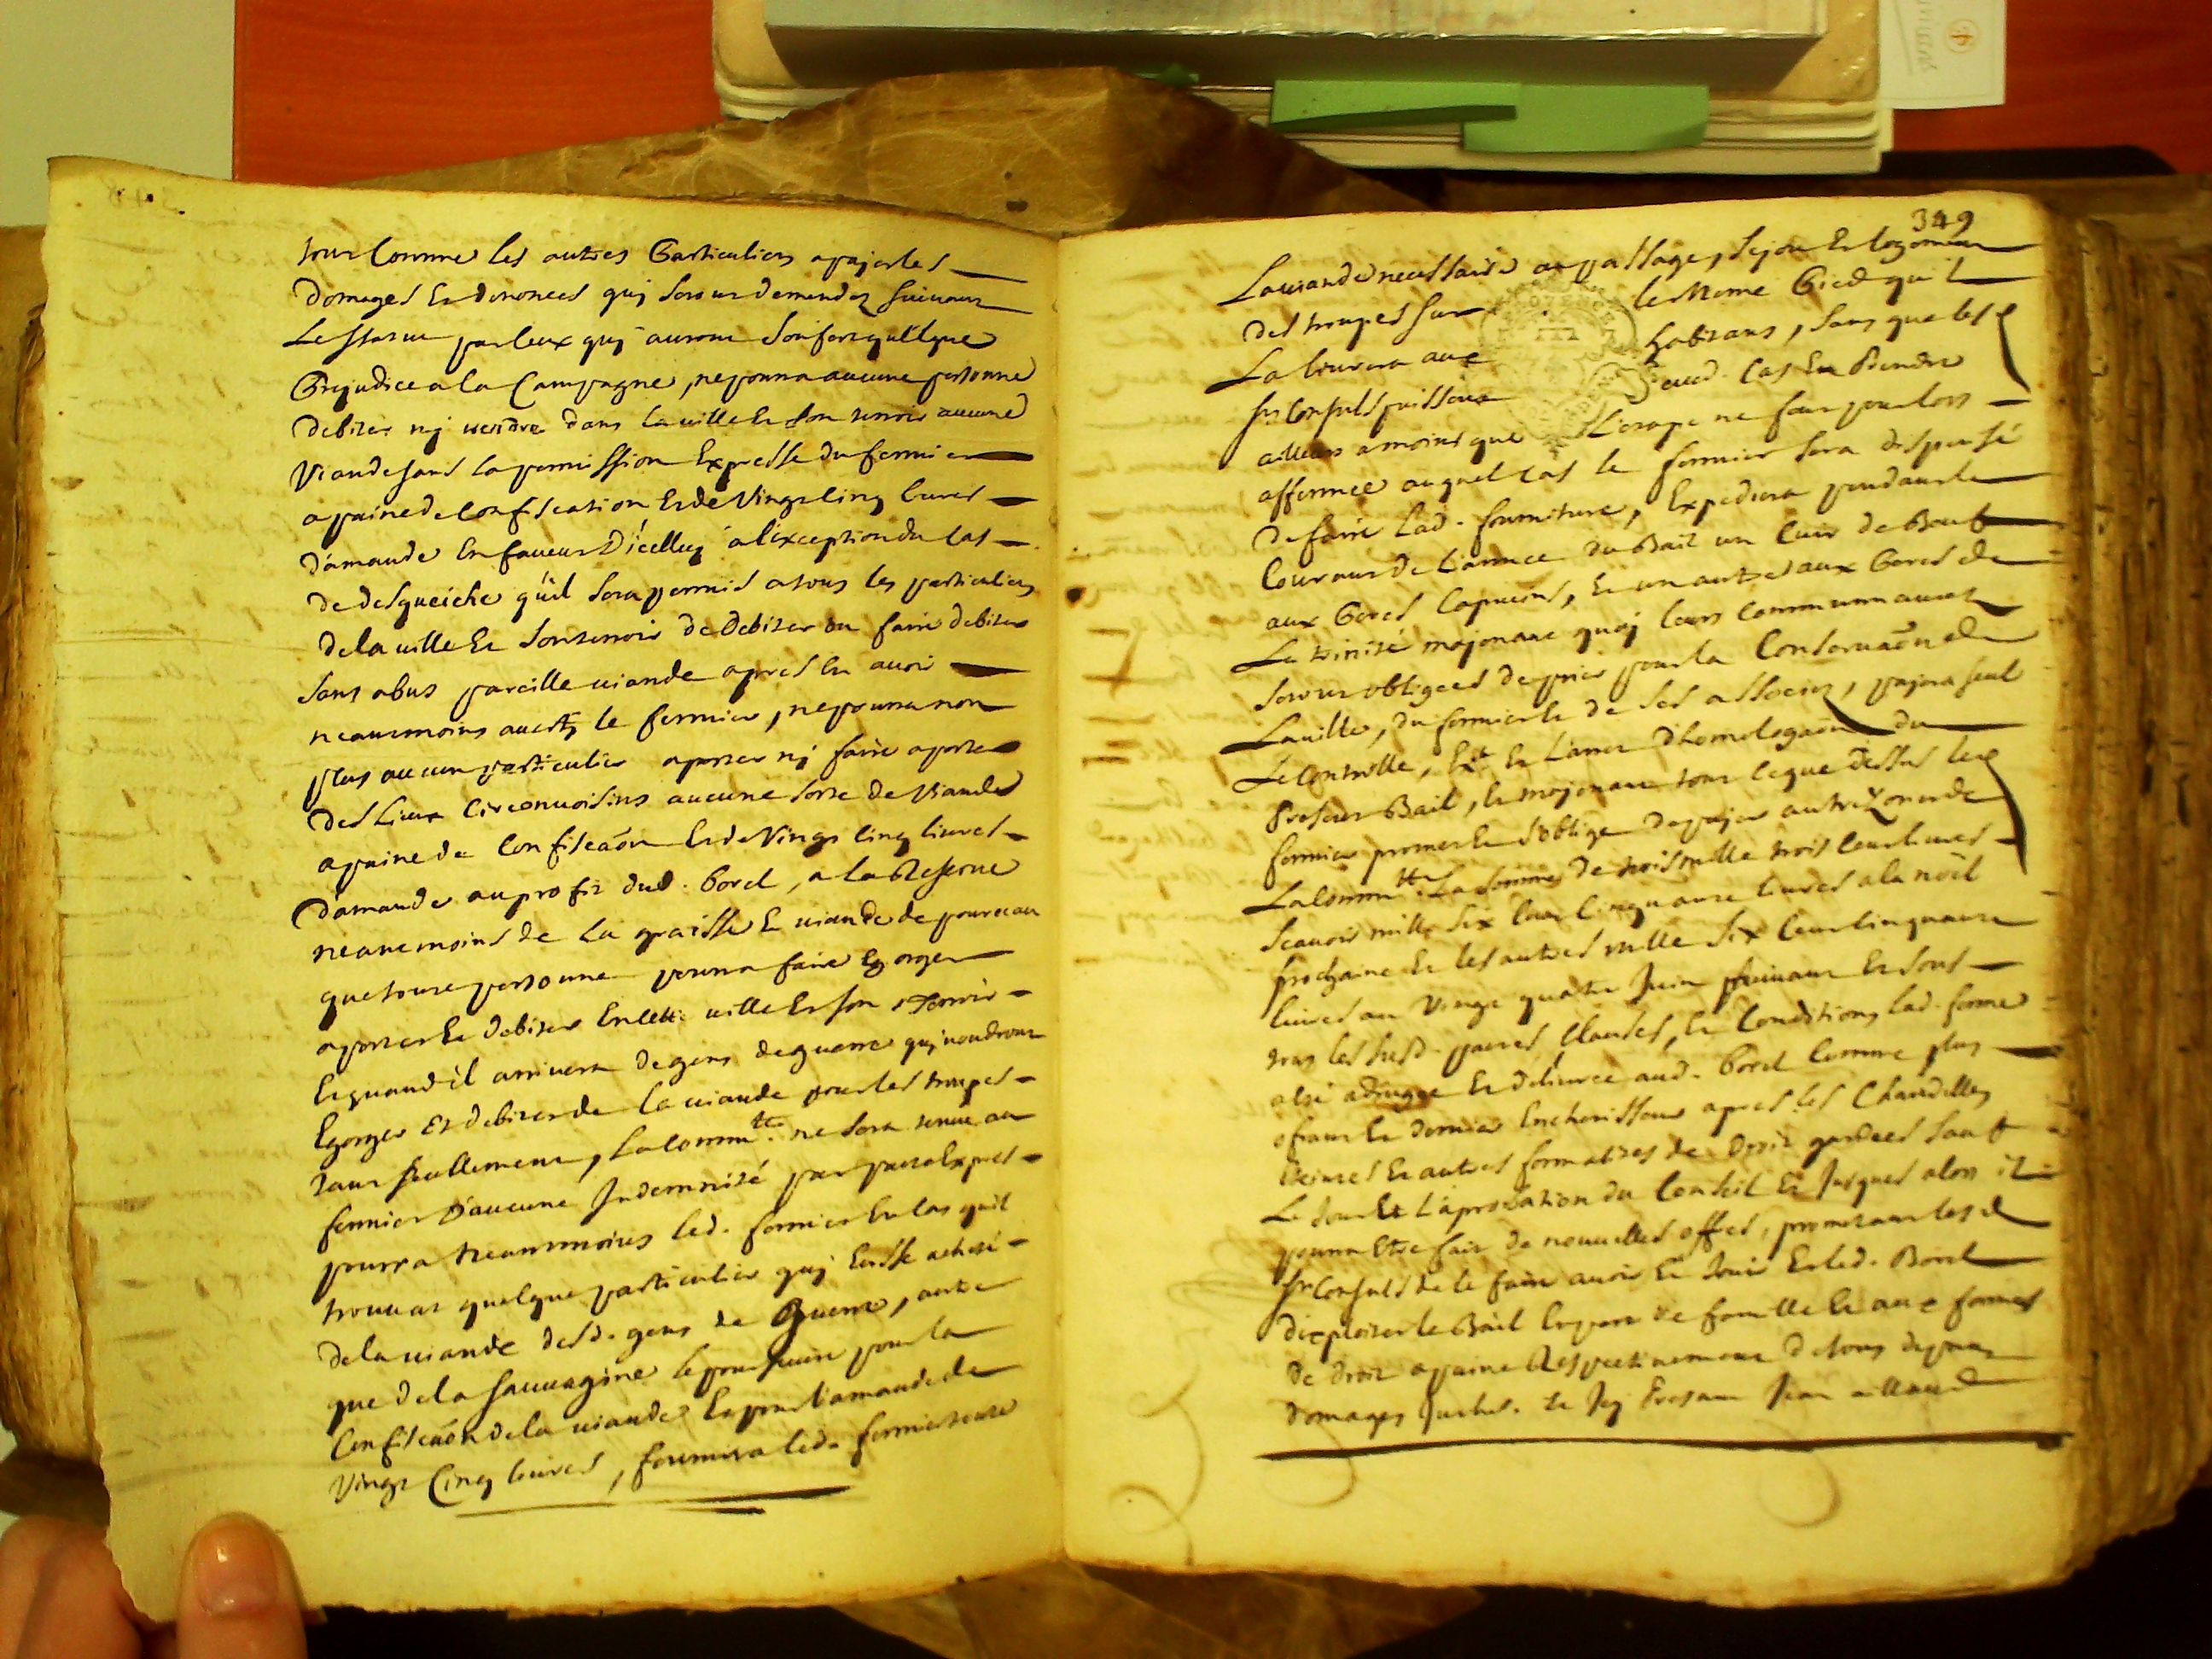 tout Comme les autres Particuliers a payer les
domages Et denonces quj seront demandez suivant
Le statut par Ceux quj auront soufert quelque
Prejudice a la Campagne, ne pourra aucune personne
debiter nj vendre dans la ville Et son terroir aucune
Viande sans la permission Expresse du fermier
a paine de Confiscation Et de Vingt Cinq livres
d'amande En faveur d'icelluy a l'exception du Cas
de desqueiche qu'il sera permis a tous les particuliers
de la ville Et son terroir de debiter ou faire debiter
sans abus pareille viande apres En avoir
neantmoins averty le fermier, ne pourra non
plus aucun particulier aporter nj faire aporter
des Lieux Circonvoisins aucune sorte de Viande
a paine de Confiscaōn Et de Vingt Cinq livres
d'amande au profit dud. borel, a la Reserve
neantmoins de La graisse Et viande de pourceau
que toute personne pourra faire Egorger
aporter Et debiter En cette ville Et son Terroir
Et quand il arrivera de gens de guerre quj voudront
Egorger Et debiter de la viande pour les troupes
tant seullement, La Commté. ne sera tenue au
fermier d'aucune Indemnité par pacte Expres
pourra neantmoins led. fermier En Cas qu'il
trouvat quelque particulier quj Eusse acheté
de la viande desd. gens de Guerre, autre
que de la sauvagine le poursuivre pour la
Confiscaōn de la viande Et pour l'amande de
Vingt Cinq livres, fournira led. fermier toute
349
La viande necessaire au passage, sejour Et logement
des troupes sur le Meme Pied qu'il
La livrera aux habitans, sans que les
srs Consuls puissent aud. Cas En Prendre
ailleurs a moins que L'etape ne fut pour lors
affermée auquel Cas le fermier sera dispensé
de faire Lad. fourniture, Expediera pendant le
Courant de L'année du Bail un Cuir de Bœuf
aux Peres Capucins, Et un autre aux Peres de
La trinité mojenant quoj leurs Communautés
seront obligees de prier pour la Conservaōn de
La ville, du fermier Et de ses associez, pajera seul
Le Controlle, Ext Et L'arret d'homologaōn du
Present Bail, Et mojenant tout Ce que dessus led
fermier promet Et s'oblige de pajer au trezorier de
La Commté La somme de trois mille trois Cent livres
scavoir mille six Cent Cinquante livres a la noël
prochaine Et les autres mille six Cent Cinquante
livres au Vingt quatre Juin suivant Et sous
tous les susd. pactes, Clauses, Et Conditions Lad. ferme
a eté adjugée Et delivrée aud. borel Comme plus
ofrant Et dernier Encherisseur apres les Chandelles
Eteintes Et autres formalités de Droit gardées sauf
L'aprobation du Conseil Et Jusques alors il
pourra Etre fait de nouvelles offres, promettant lesd
srs Consuls de le faire avoir Et Jouir Et led. Borel
d'exploiter le Bail En pere de famille Et aux formes
de Droit a paine Respectivement de tous depens
domages Interets. Et Icy Present Jean aillaud